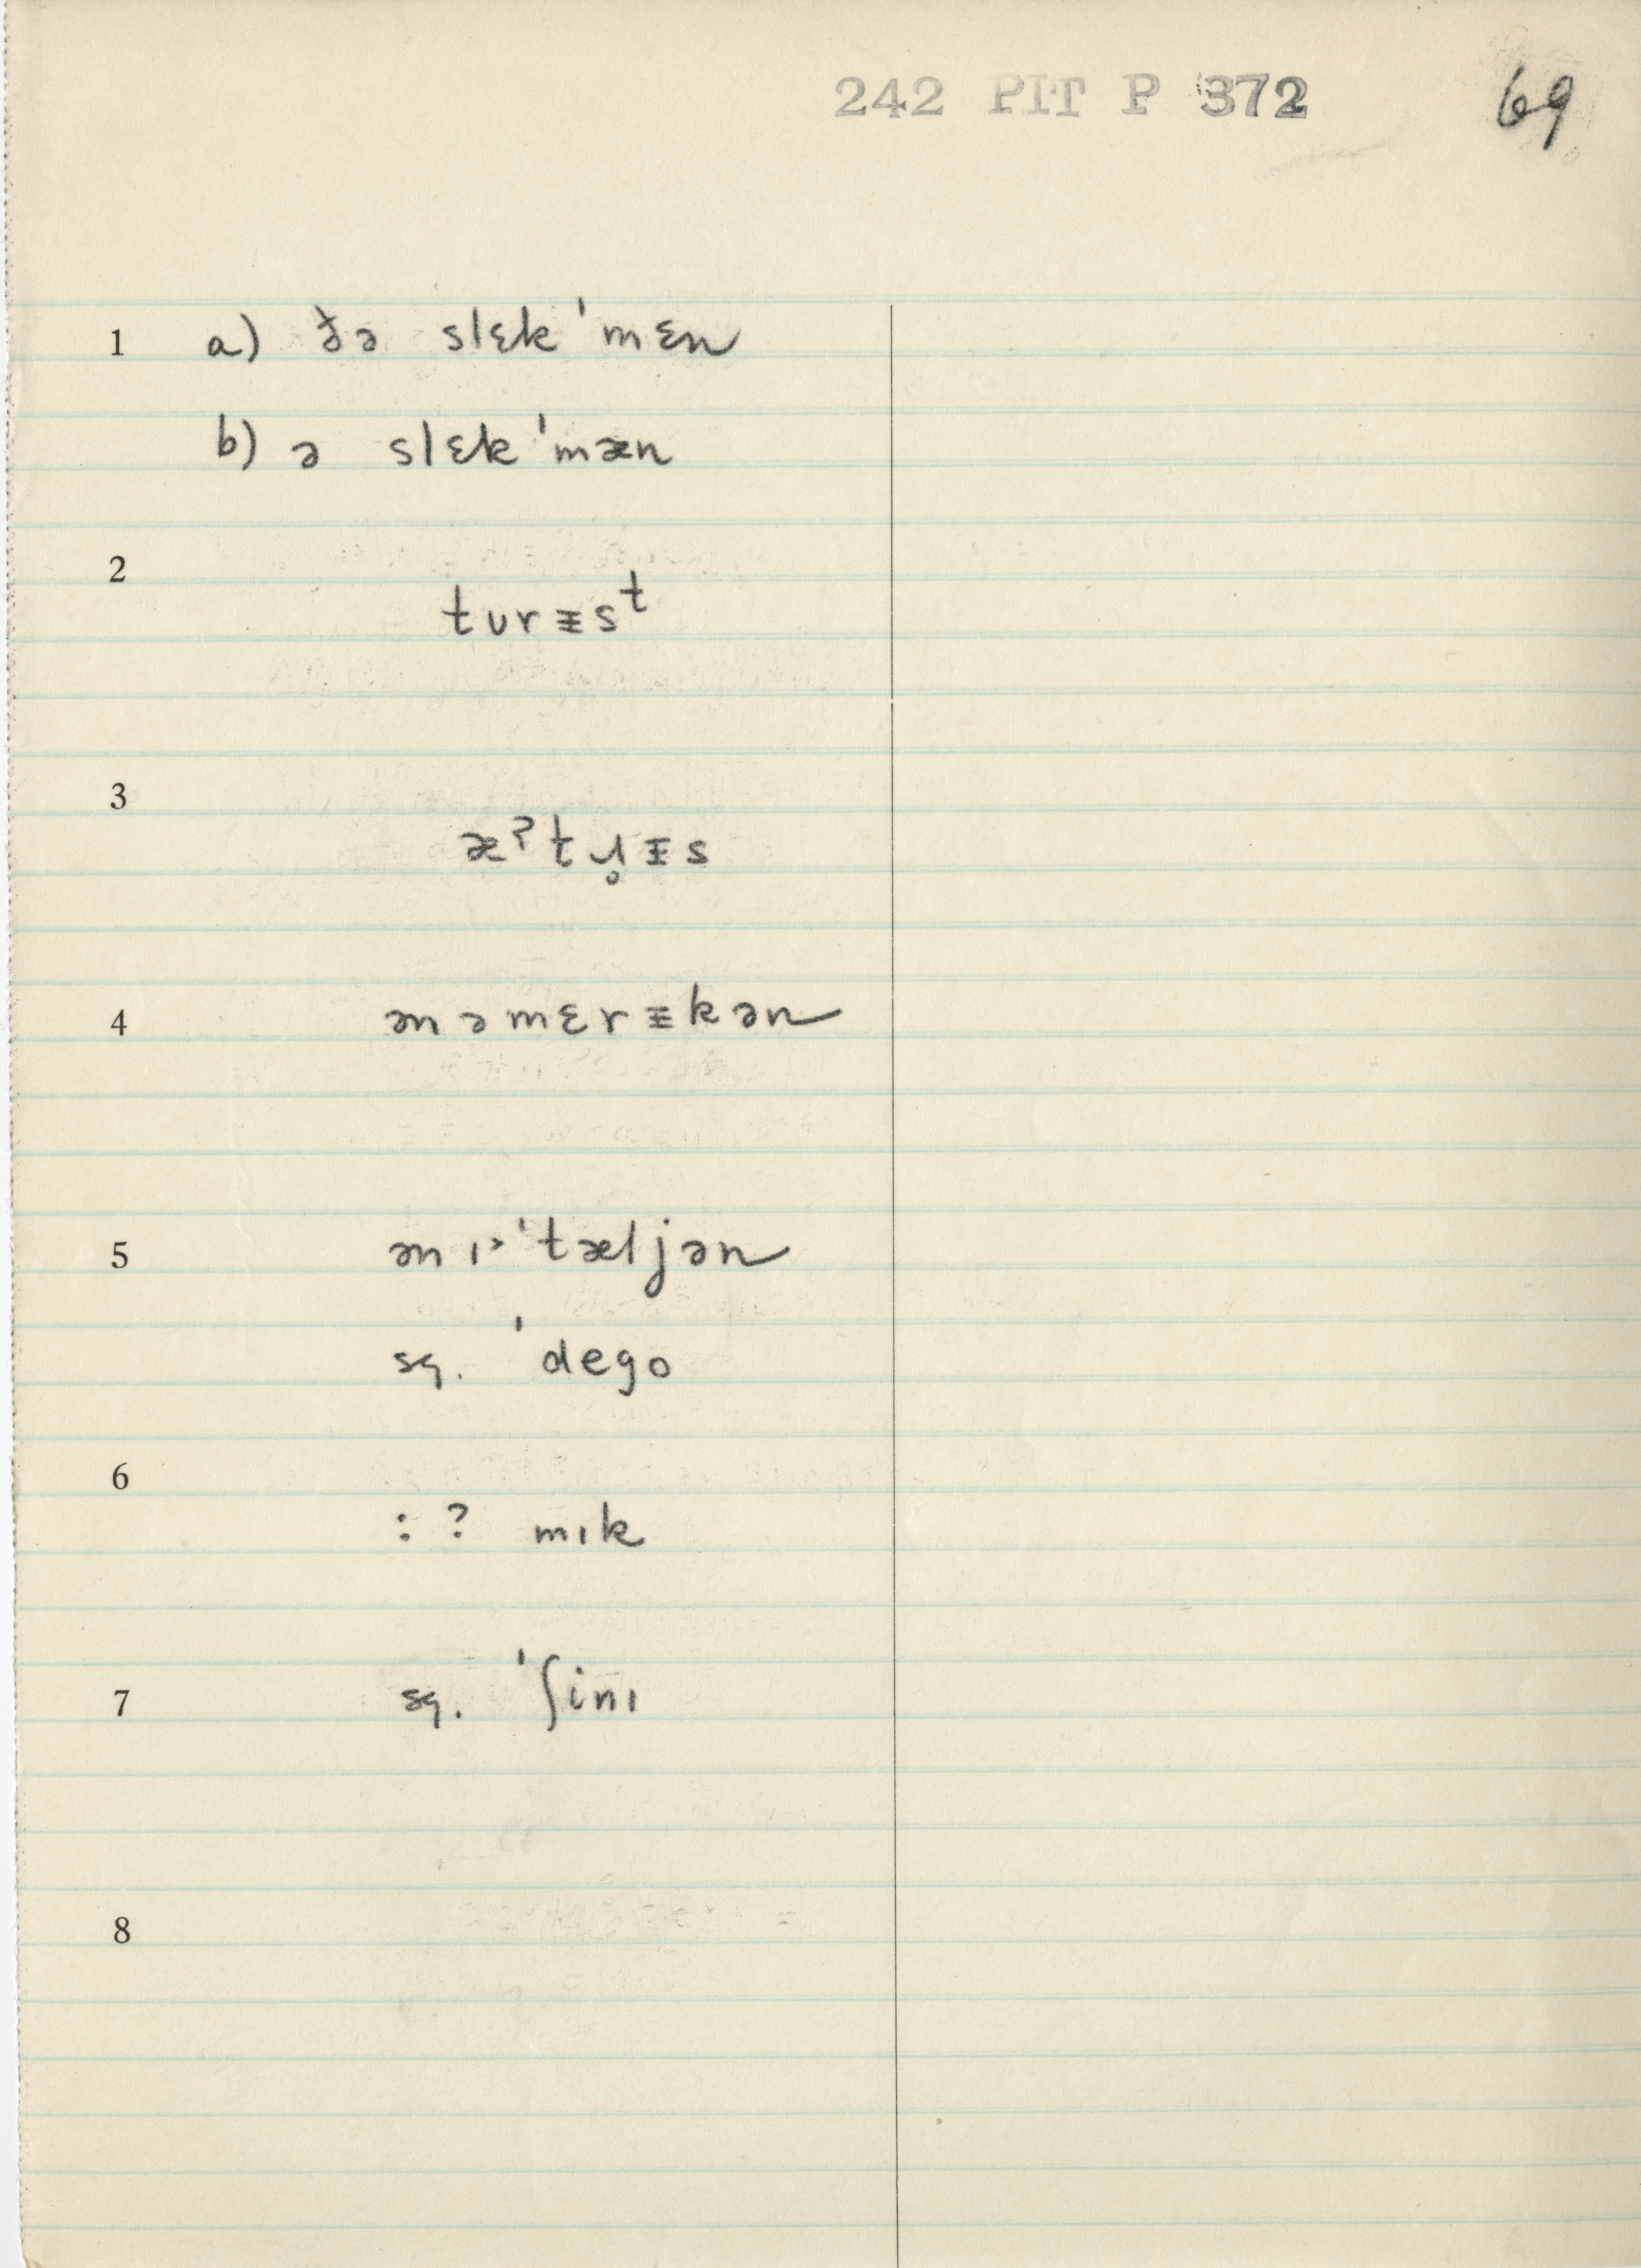 242 PIT P 372 69
1 a) ðə slɛk ˈmɛn
b) ə slɛk ˈmæn
2
tʊrɪ̵sᵗ
3
æˀtɹ̥ɪ̵s
4 ən əmɛrɪ̵kən
5 ən ɪ˃ˈtæljən
sq. ˈdego
6
: ? mɪk
7 sq. ˈʃinɪ
8